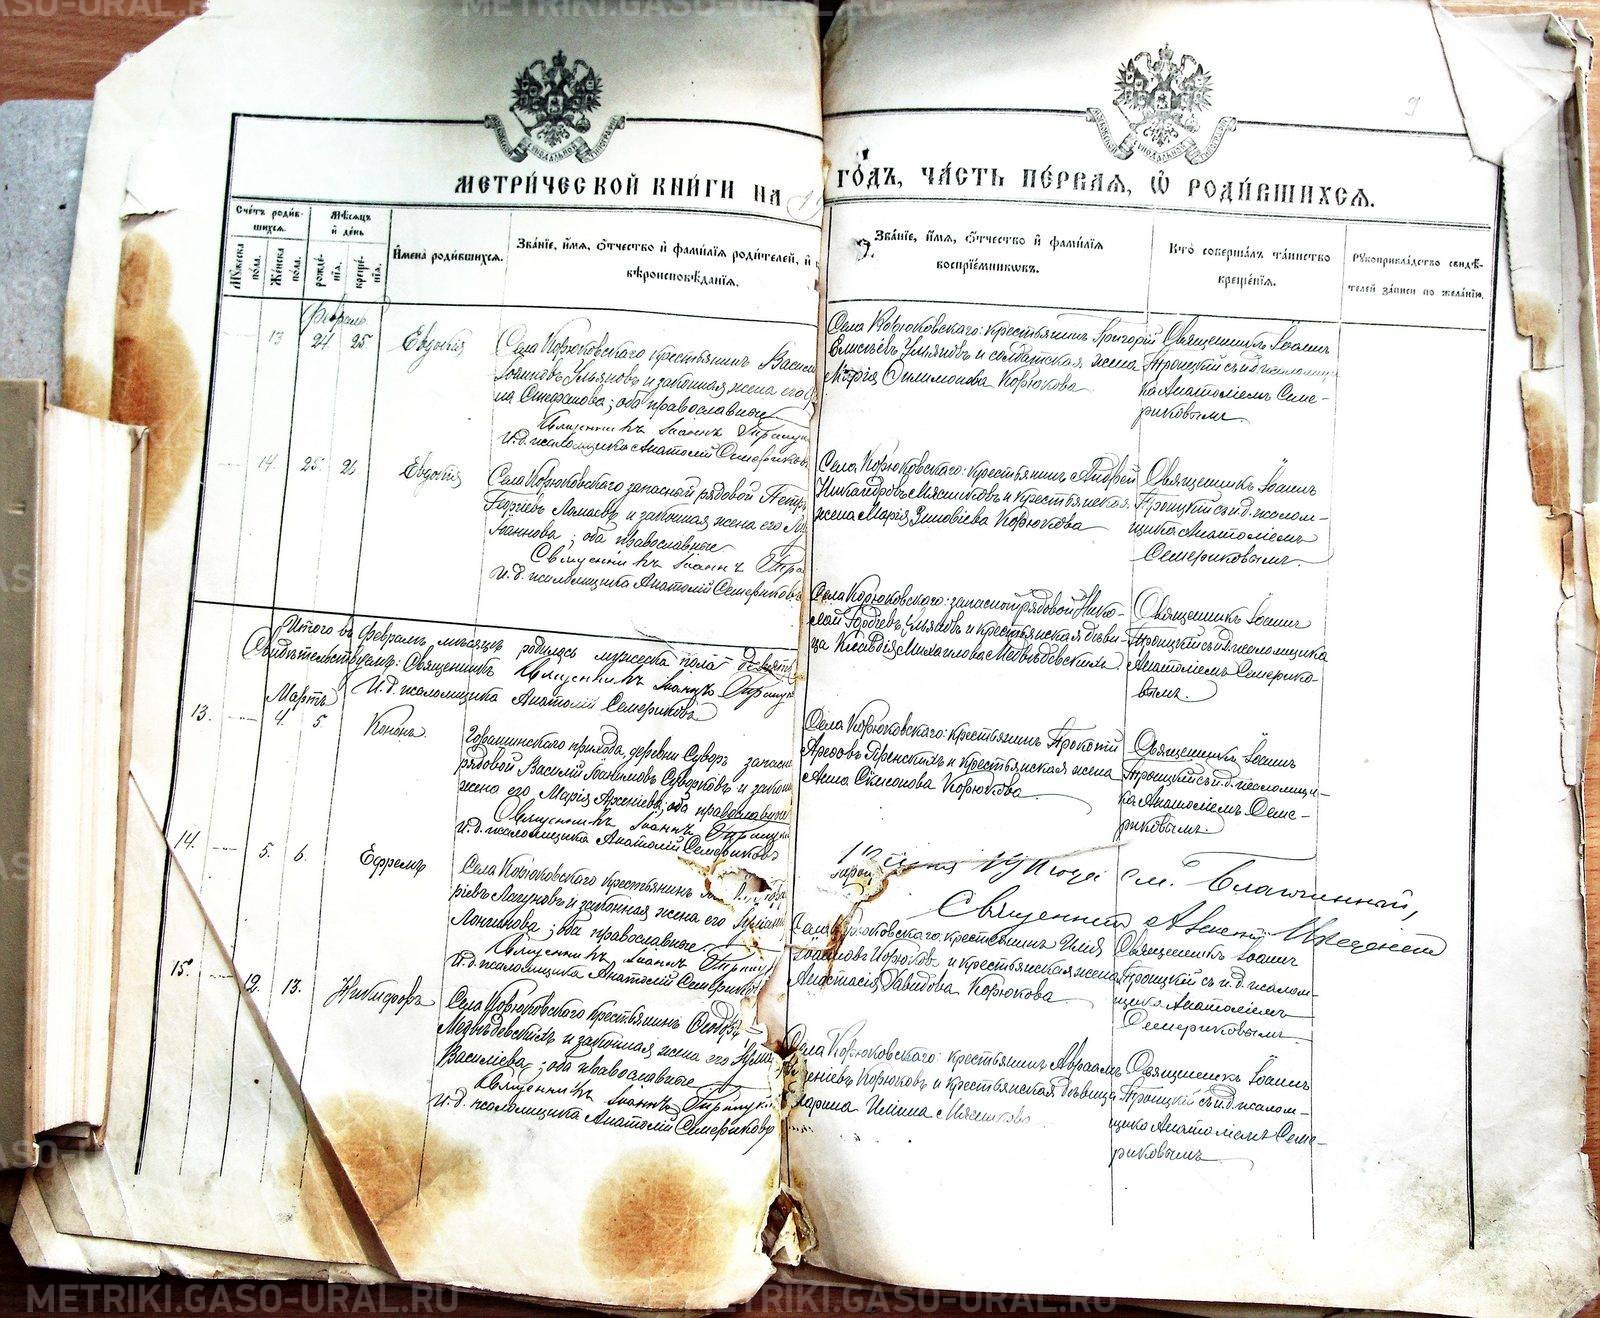 METRIKI.GASO-URAL.RU
МЕТРИ́ЧЕСКОЙ КНИ́ГИ НА
ГО́ДЪ, ЧА́СТЬ ПЕ́РВАЯ, Ѡ РОДИ́ВШИХСЯ.
9
Сче́тъ роди́в-
шихся.
Мѣ́сяцъ
и҆ де́нь
Мꙋ́жеска по́ла.
Же́нска по́ла.
рожде́-
нїѧ.
креще́-
нїѧ.
И҆мена̀ роди́вшихся.
Зва́нїе, и҆́мѧ, ѻ҆́тчество и҆ фами́лїѧ роди́телей, и҆
вѣроисповѣ́данїѧ.
Зва́нїе, и҆́мѧ, ѻ҆́тчество и҆ фами́лїѧ
воспрїе́мникѡвъ.
Кто̀ соверша́лъ та́инство
креще́нїѧ.
Рꙋкоприкла́дство свидѣ́-
телей за́писи по жела́нїю.
Февраль
13 24 25 Евдокія
Села Корюковскаго крестьянинъ Васи
Іоанновъ Ульяновъ и законная жена его
на Стефанова; оба православные
Священникъ Іоаннъ
И. д. псаломщика Анатолій Семериковъ
Села Корюковскаго: крестьянинъ Григорій
Елисѣевъ Ульяновъ и солдатская жена
Марія Филимонова Корюкова
Священникъ Іоаннъ
Троицкій съ и. д. псаломщи-
ка Анатоліемъ Семе-
риковымъ.
14. 25. 26 Евдокія
Села Корюковскаго запасной рядовой Петръ
Георгіевъ Ламаевъ и законная жена его
Іоаннова; оба православные
Священникъ Іоаннъ
И. д. псаломщика Анатолій Семериковъ
Села Корюковскаго: крестьянинъ Андрей
Никандровъ Мясниковъ и крестьянская
жена Марія Зиновіева Корюкова
Священникъ Іоаннъ
Троицкій съ и. д. псалом-
щика Анатоліемъ
Семериковымъ.
Итого въ февралѣ мѣсяцѣ родилось мужеска пола девять
Свидѣтельствуемъ: Священникъ Священникъ Іоаннъ
И. д. псаломщика Анатолій Семериковъ
Села Корюковскаго: запасной рядовой Нико-
лай Гордѣевъ Ульяновъ и крестьянская дѣви-
ца Клавдія Михаилова Медвѣдевскихъ
Священникъ Іоаннъ
Троицкій съ и. д. псаломщика
Анатоліемъ Семерико-
вымъ.
Мартъ
13. 4 5 Кононъ
прихода, деревни запасн
рядовой Василій Суворковъ и законн
жена его Марія Арсеніева; оба православные
Священникъ Іоаннъ
И. д. псаломщика Анатолій Семериковъ
Села Корюковскаго: крестьянинъ Прокопій
и крестьянская жена
Анна Симеонова Корюкова
Священникъ Іоаннъ
Троицкій съ и. д. псаломщи-
ка Анатоліемъ Семе-
риковымъ.
14. 5. 6. Ефремъ
Села Корюковскаго крестьянинъ
ріевъ Лагуновъ и законная жена его
Логинова; оба православные.
Священникъ Іоаннъ
И. д. псаломщика Анатолій Семериковъ
см. Благочинный,
Священникъ
Села Корюковскаго: крестьянинъ Илія
Іоанновъ Корюковъ и крестьянская жена
Анастасія Давидова Корюкова
Священникъ Іоаннъ
Троицкій съ и. д. псалом-
щика Анатоліемъ
Семериковымъ.
15. 12. 13. Никифоръ
Села Корюковскаго крестьянинъ Ѳеодоръ
Медвѣдевскихъ и законная жена его
Василіева; оба православные
Священникъ Іоаннъ
И. д. псаломщика Анатолій Семериковъ
Села Корюковскаго: крестьянинъ Авраамъ
Корюковъ и крестьянская дѣвица
Илiина Мясникова
Священникъ Іоаннъ
Троицкій съ и. д. псалом-
щика Анатоліемъ Семе-
риковымъ.
METRIKI.GASO-URAL.RU